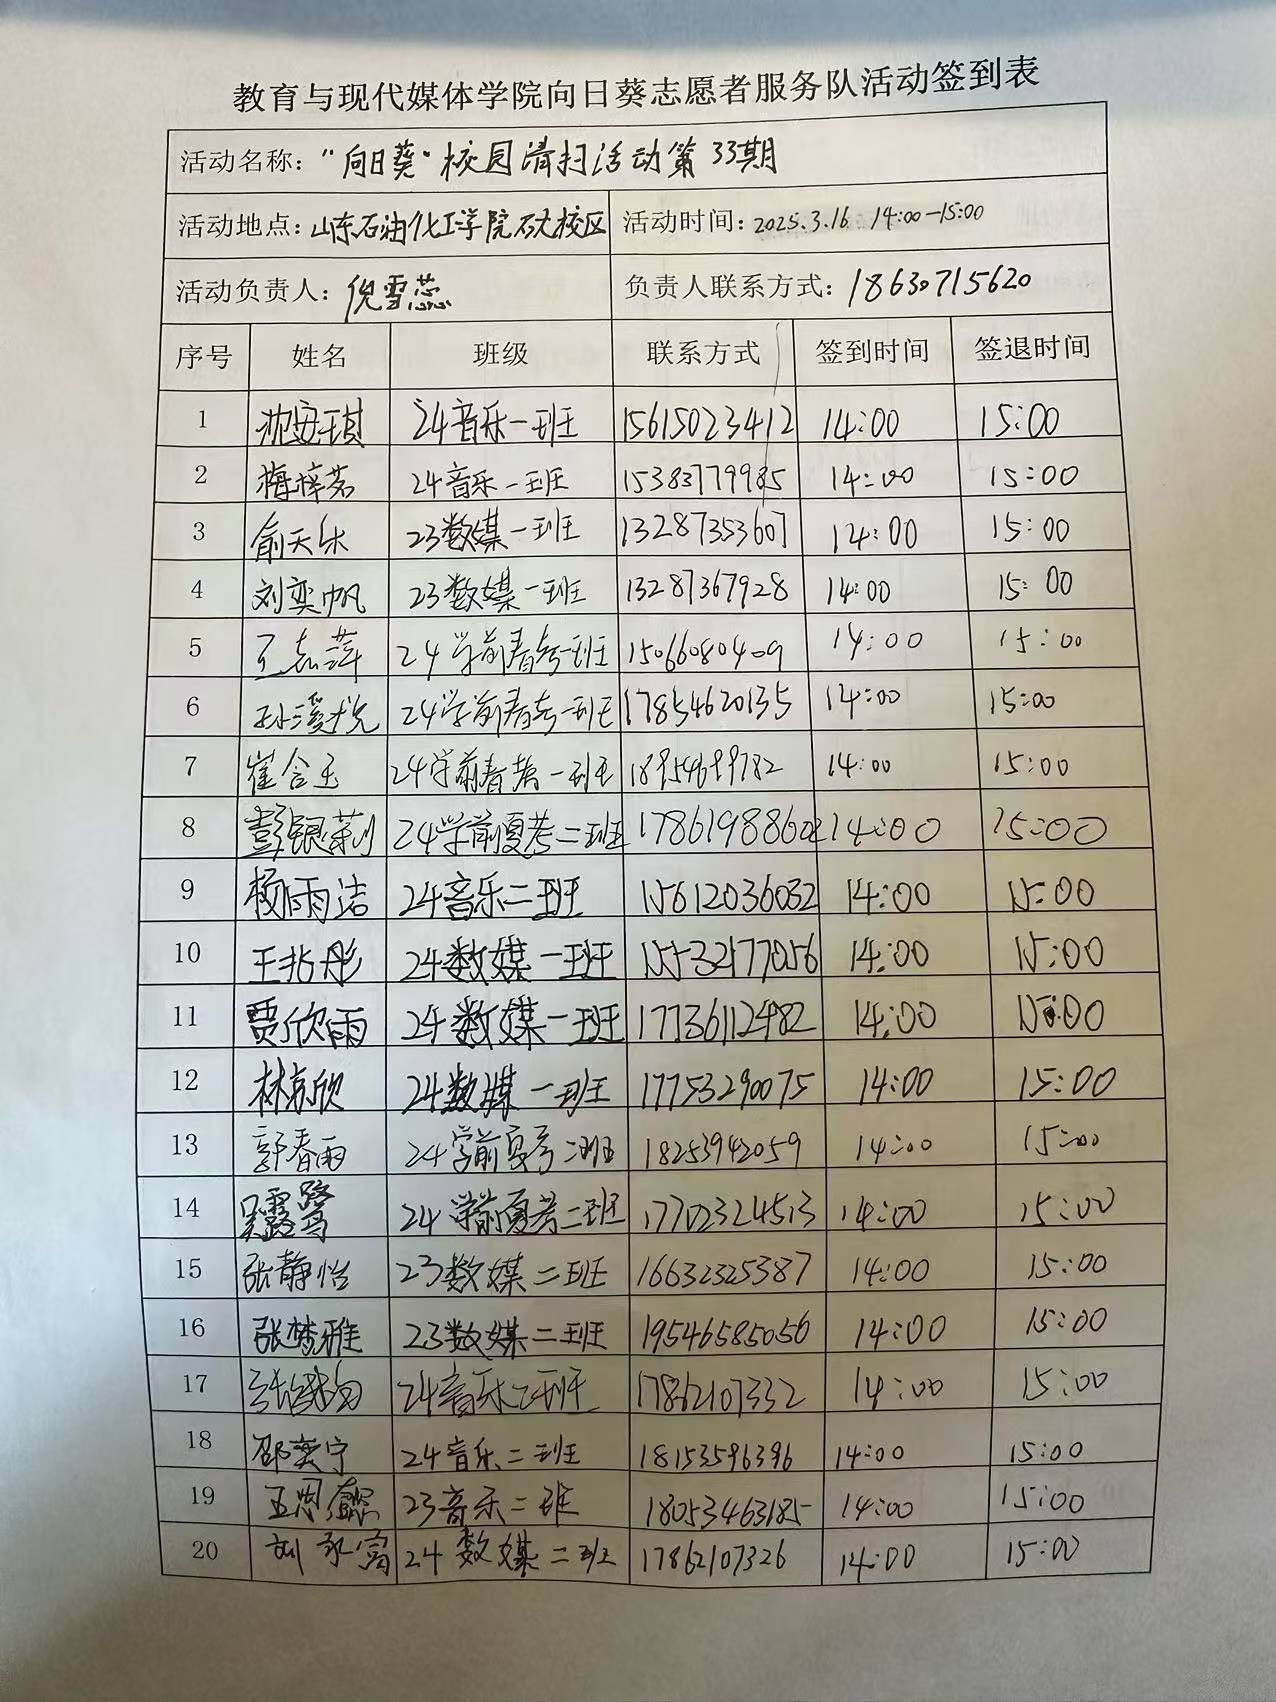 教育与现代媒体学院向日葵志愿者服务队活动签到表
活动名称："向日葵"校园清扫活动第33期
活动地点：山东石油化工学院石大校区 活动时间：2025.3.16 14:00-15:00
活动负责人：倪雪蕊 负责人联系方式：18630715620
序号 姓名 班级 联系方式 签到时间 签退时间
1 沈安琪 24音乐一班 15615023412 14:00 15:00
2 梅梓茗 24音乐一班 15383779985 14:00 15:00
3 俞天乐 23数媒一班 13287353607 14:00 15:00
4 刘奕帆 23数媒一班 13287367928 14:00 15:00
5 24学前春考一班 15066080409 14:00 15:00
6 孙溪悦 24学前春考一班 17854620135 14:00 15:00
7 崔含玉 24学前春考一班 18954699782 14:00 15:00
8 彭银莉 24学前夏考二班 17861988602 14:00 15:00
9 杨雨洁 24音乐二班 15612036032 14:00 15:00
10 24数媒一班 15532177056 14:00 15:00
11 贾欣雨 24数媒一班 17736112482 14:00 15:00
12 林京欣 24数媒一班 17753290075 14:00 15:00
13 郭春雨 24学前夏考二班 18253942059 14:00 15:00
14 吴露鹭 24学前夏考二班 17702324513 14:00 15:00
15 张静怡 23数媒二班 16632325387 14:00 15:00
16 张梦雅 23数媒二班 19546585056 14:00 15:00
17 24音乐二班 17862107332 14:00 15:00
18 邵奕宁 24音乐二班 18153596396 14:00 15:00
19 23音乐二班 18053463185 14:00 15:00
20 24数媒二班 17862107326 14:00 15:00